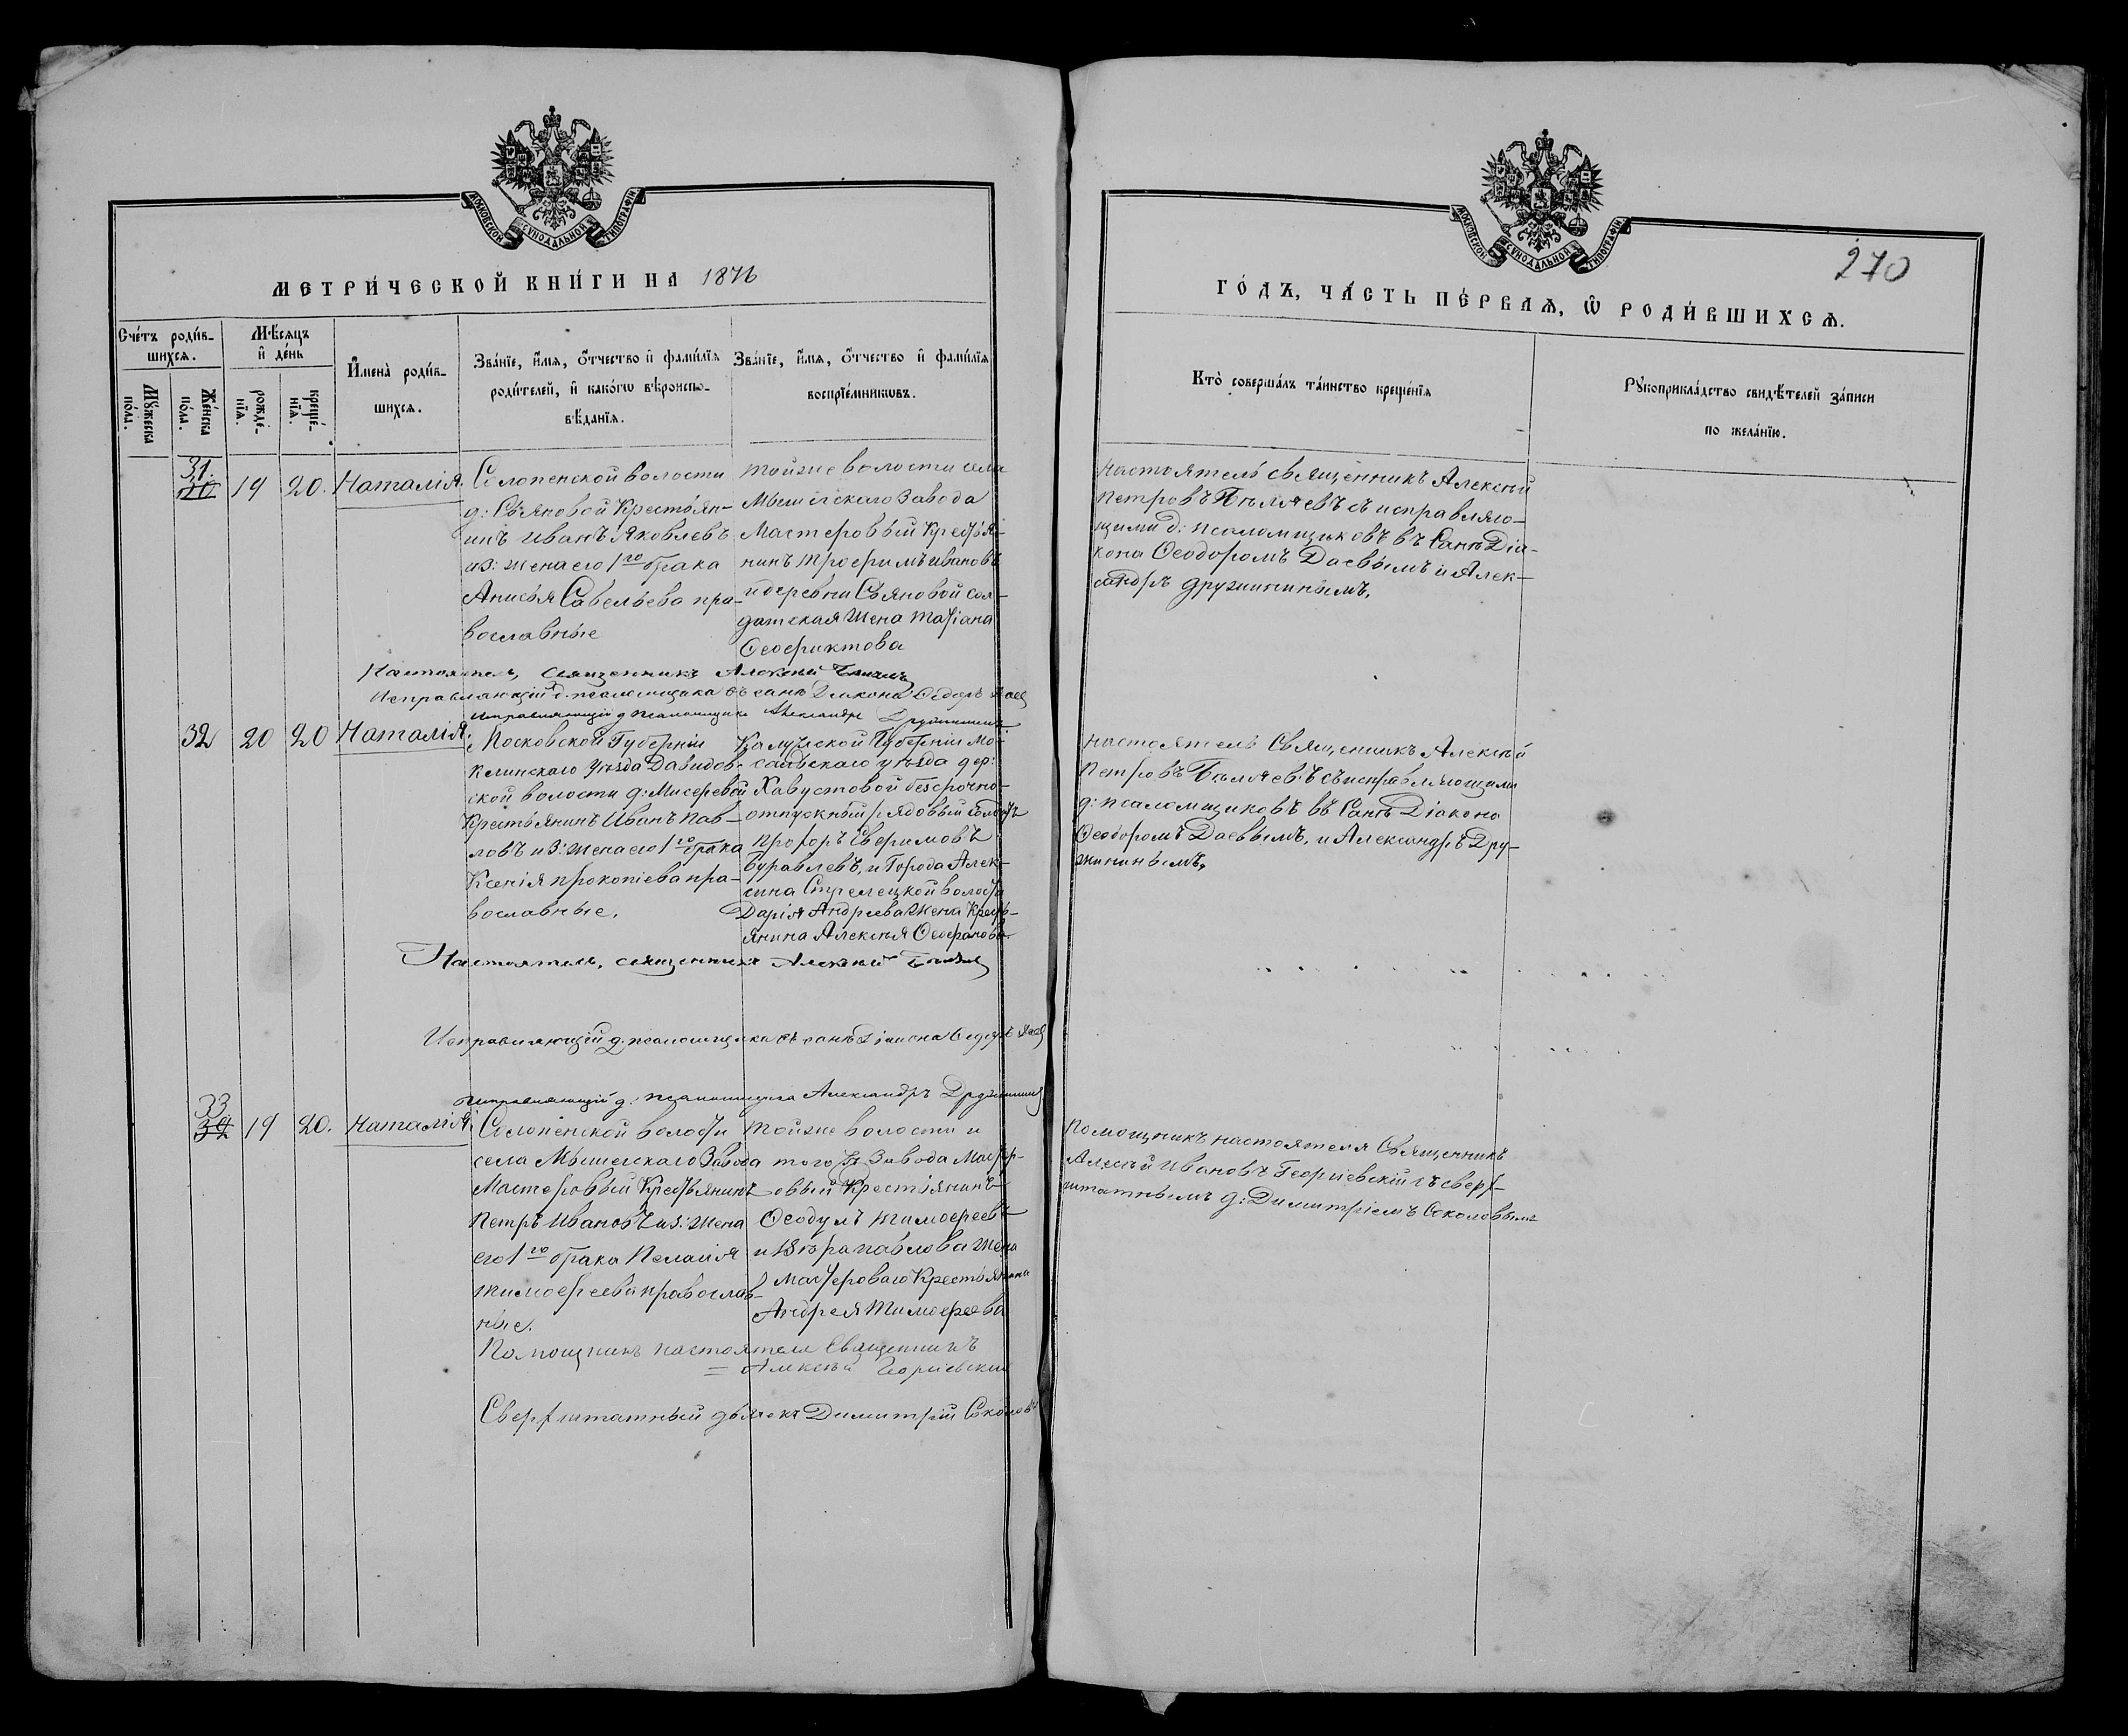 МОСКОВСКОЙ СУНОДАЛЬНОЙ ТИПОГРАФІИ
МЕТРИ́ЧЕСКОЙ КНИ́ГИ НА 1876
Сче́тъ роди́в-
шихсѧ.
Мѣ́сѧцъ
и҆ де́нь
Мꙋ́жеска
по́ла.
Же́нска
по́ла.
рожде́-
нїѧ.
креще́-
нїѧ.
И҆мена̀ роди́в-
шихсѧ.
Зва́нїе, и҆́мѧ, ѻ҆́тчество и҆ фами́лїѧ
роди́телей, и҆ како́гѡ вѣроиспо-
вѣ́данїѧ.
Зва́нїе, и҆́мѧ, ѻ҆́тчество и҆ фами́лїѧ
воспрїе́мникѡвъ.
31.
19 20. Наталія.
Солопенской волости
д: Свяновой Крестьян-
инъ Иванъ Яковлевъ
и з: жена его 1го брака
Анисья Савельева пра-
вославные
тойже волости села
Мышегскаго завода
Мастеровый Кресть́я-
нинъ Трофимъ Ивановъ
и деревни Свяновой Сол-
датская жена Татіана
Ѳеофиктова
Настоятель, священникъ Алексѣй Бѣляевъ
Исправляющій д. псаломщика въ санѣ Діакона Ѳедоръ Даев
Исправляющій д псаломщика Александръ Дружининъ
32 20 20 Наталія.
Московской Губерніи
Клинскаго уѣзда Давидов-
ской волости д: Мисеревой
Крестьянинъ Иванъ Пав-
ловъ и з: жена его 1го брака
Ксенія Прокопіева пра-
вославные.
Калужской Губерніи Мо-
сальскаго уѣзда дер:
Хавустовой безсрочно-
отпускный рядовый солдатъ
Прохоръ Ефримовъ
Буравлевъ, и Города Алек-
сина Стрелецкой волости
Дарія Андреева жена Кресть-
янина Алексѣя Ѳеофанова.
Настоятель, священникъ Алексѣй Бѣляев
Исправляющій д. псаломщика въ санѣ Діакона Ѳедоръ Даев
Исправляющій д: псаломщика Александръ Дружининъ
33
32 19 20. Наталія.
Солопенской волости
села Мышегскаго Завода
Мастеровый Крестьянинъ
Петръ Ивановъ и з: жена
его 1го брака Пелагія
Тимофеева православ-
ные.
Тойже волости и
того ж Завода Мастер-
овый Крестьянинъ
Ѳеодулъ Тимофеевъ
и Вѣра Павлова жена
Мастероваго Крестьянина
Андрея Тимофеева
Помощникъ настоятеля Священникъ
Алексѣй Георгіевскій
Сверхштатный дьячекъ Димитрій Соколовъ
МОСКОВСКОЙ СУНОДАЛЬНОЙ ТИПОГРАФІИ
270
ГО́ДЪ, ЧА́СТЬ ПЕ́РВАѦ, Ѡ҆ РОДИ́ВШИХСѦ.
Кто̀ соверша́лъ та́инство креще́нїѧ
Рꙋкоприкла́дство свидѣ́телей за́писи
по жела́нїю.
Настоятель священникъ Алексѣй
Петровъ Бѣляевъ съ исправляю-
щими д: псаломщиковъ въ Санѣ Діа-
кона Ѳеодоромъ Даевымъ и Алек-
сандръ Дружининымъ,
Настоятель Священникъ Алексѣй
Петровъ Бѣляевъ съ исправляющими
д: псаломщиковъ въ Санѣ Діакона
Ѳеодоромъ Даевымъ, и Александръ Дру-
жининымъ,
Помощникъ настоятеля Священникъ
Алексѣй Ивановъ Георгіевскій съ сверх-
штатнымъ д: Димитріемъ Соколовымъ